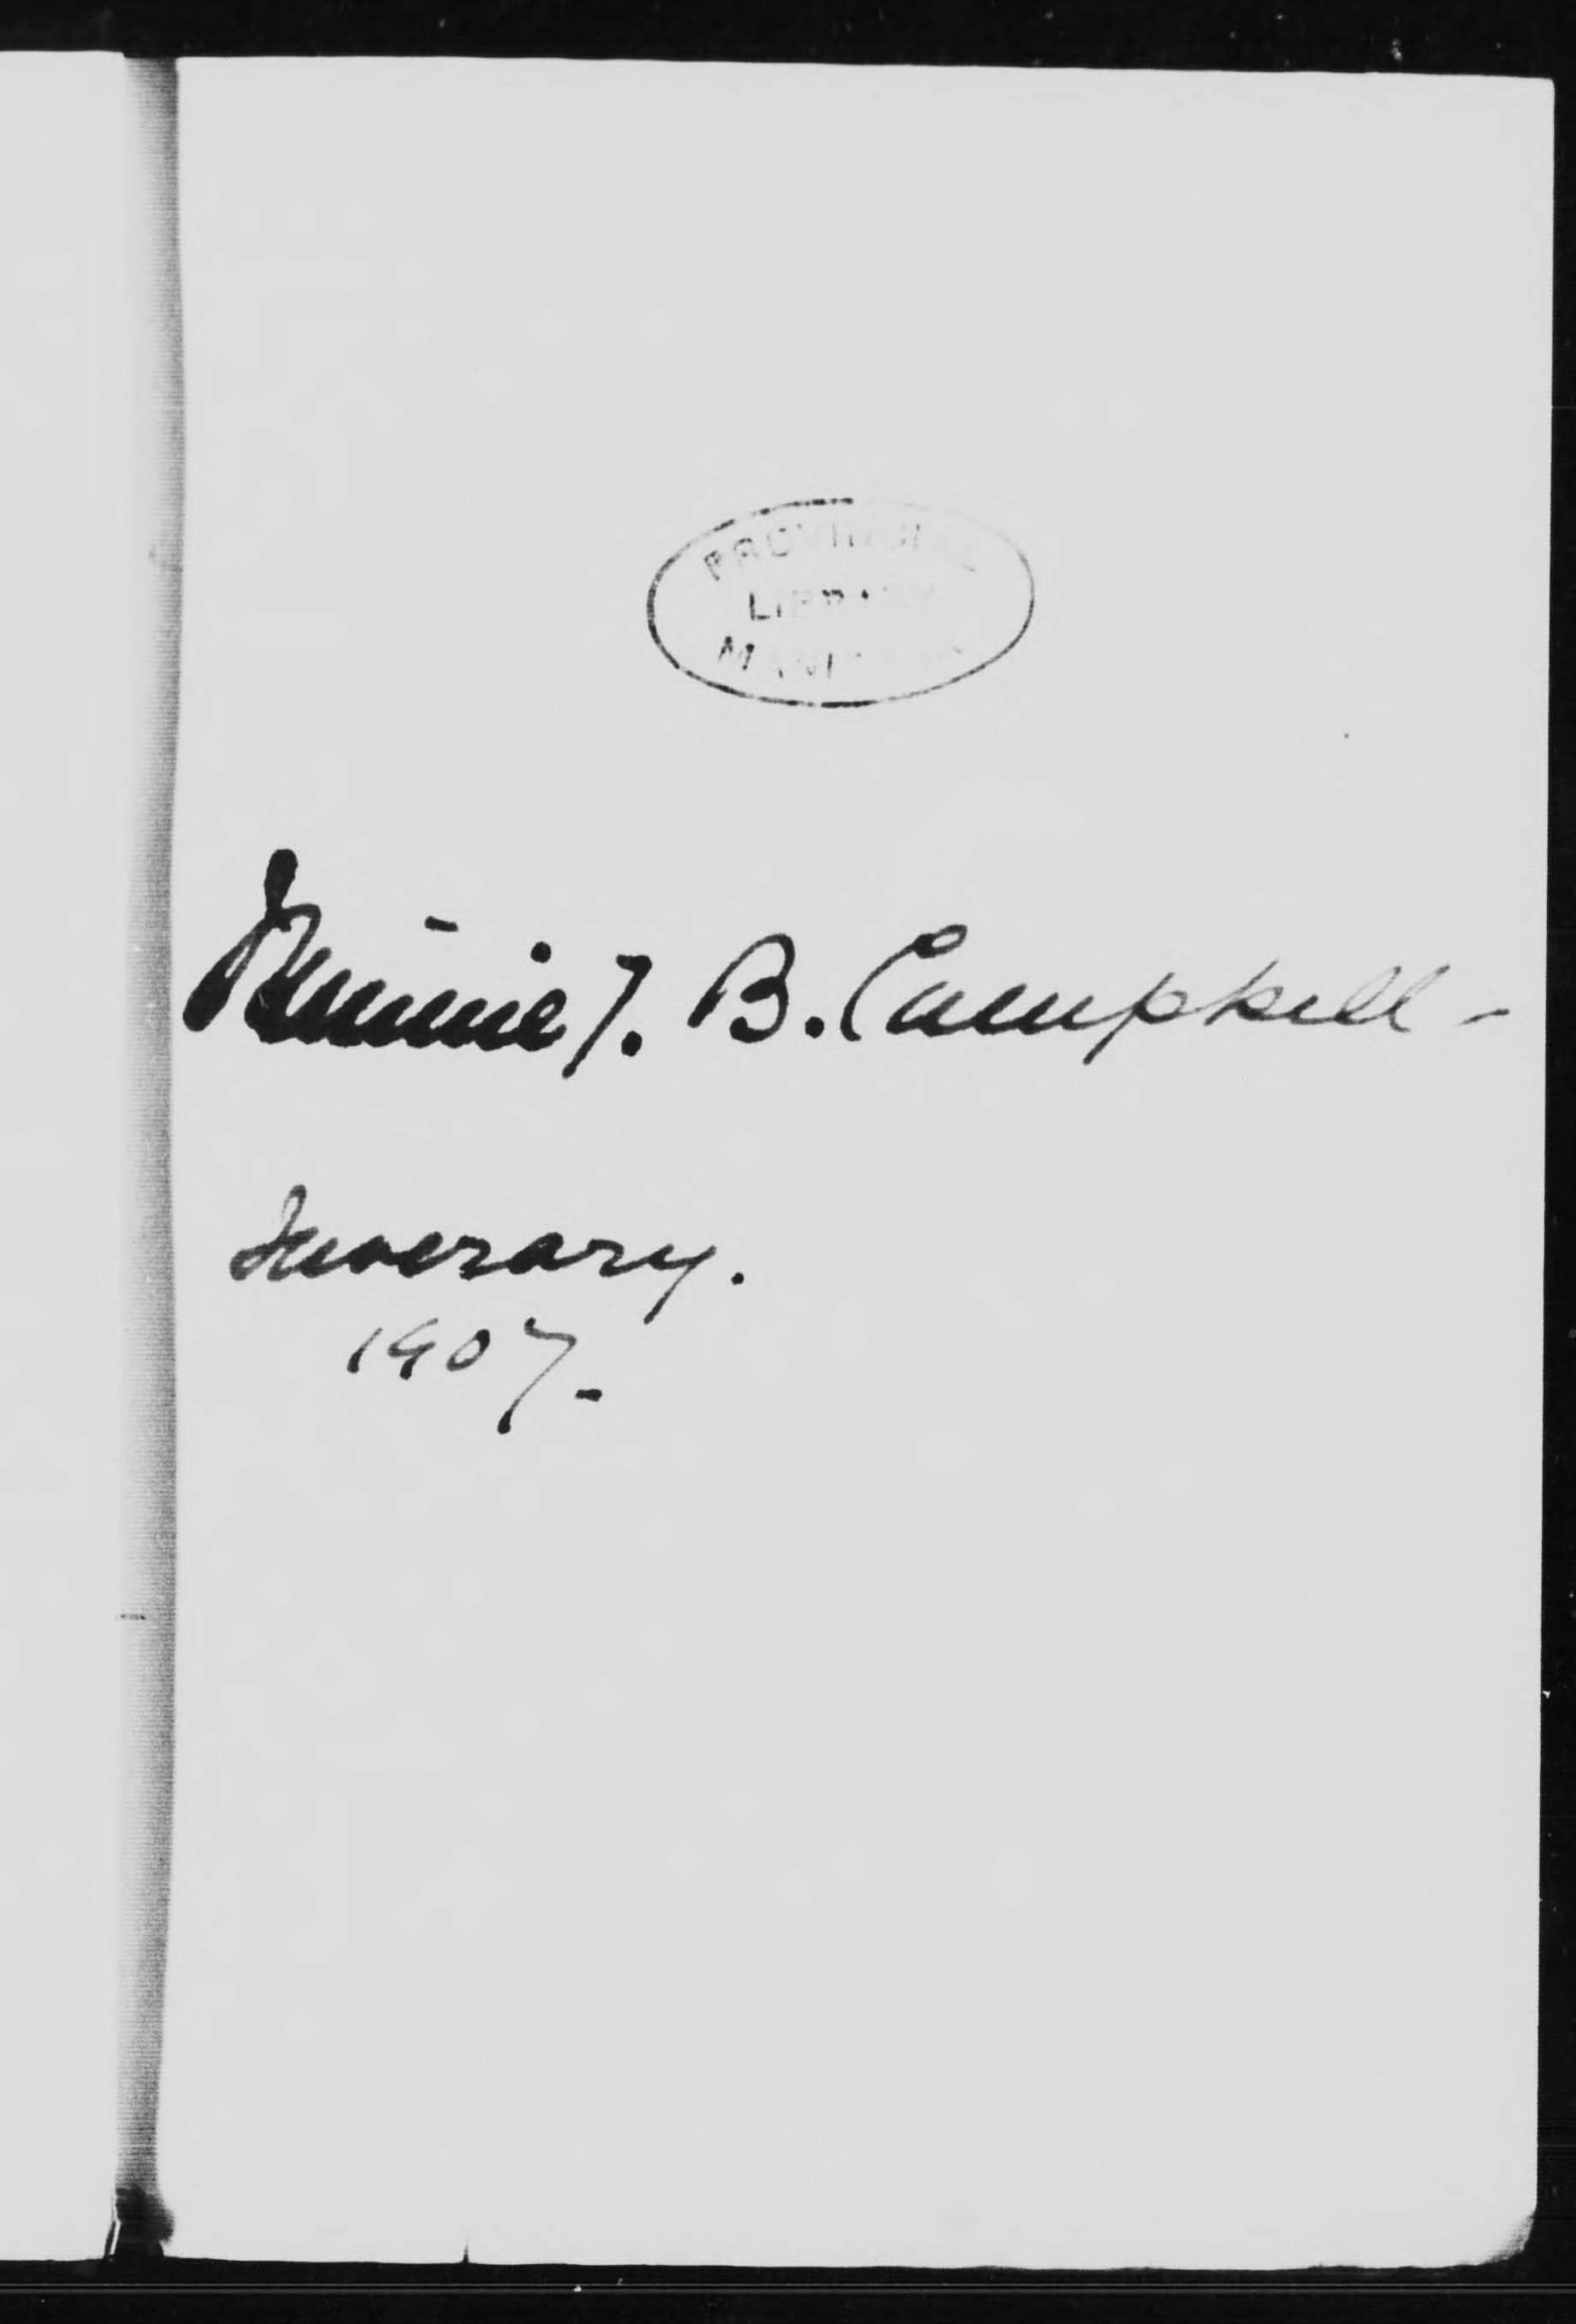 PROVINCIAL
LIBRARY
MANITOBA
Minnie J. B. Campbell -
Inverary.
1907-